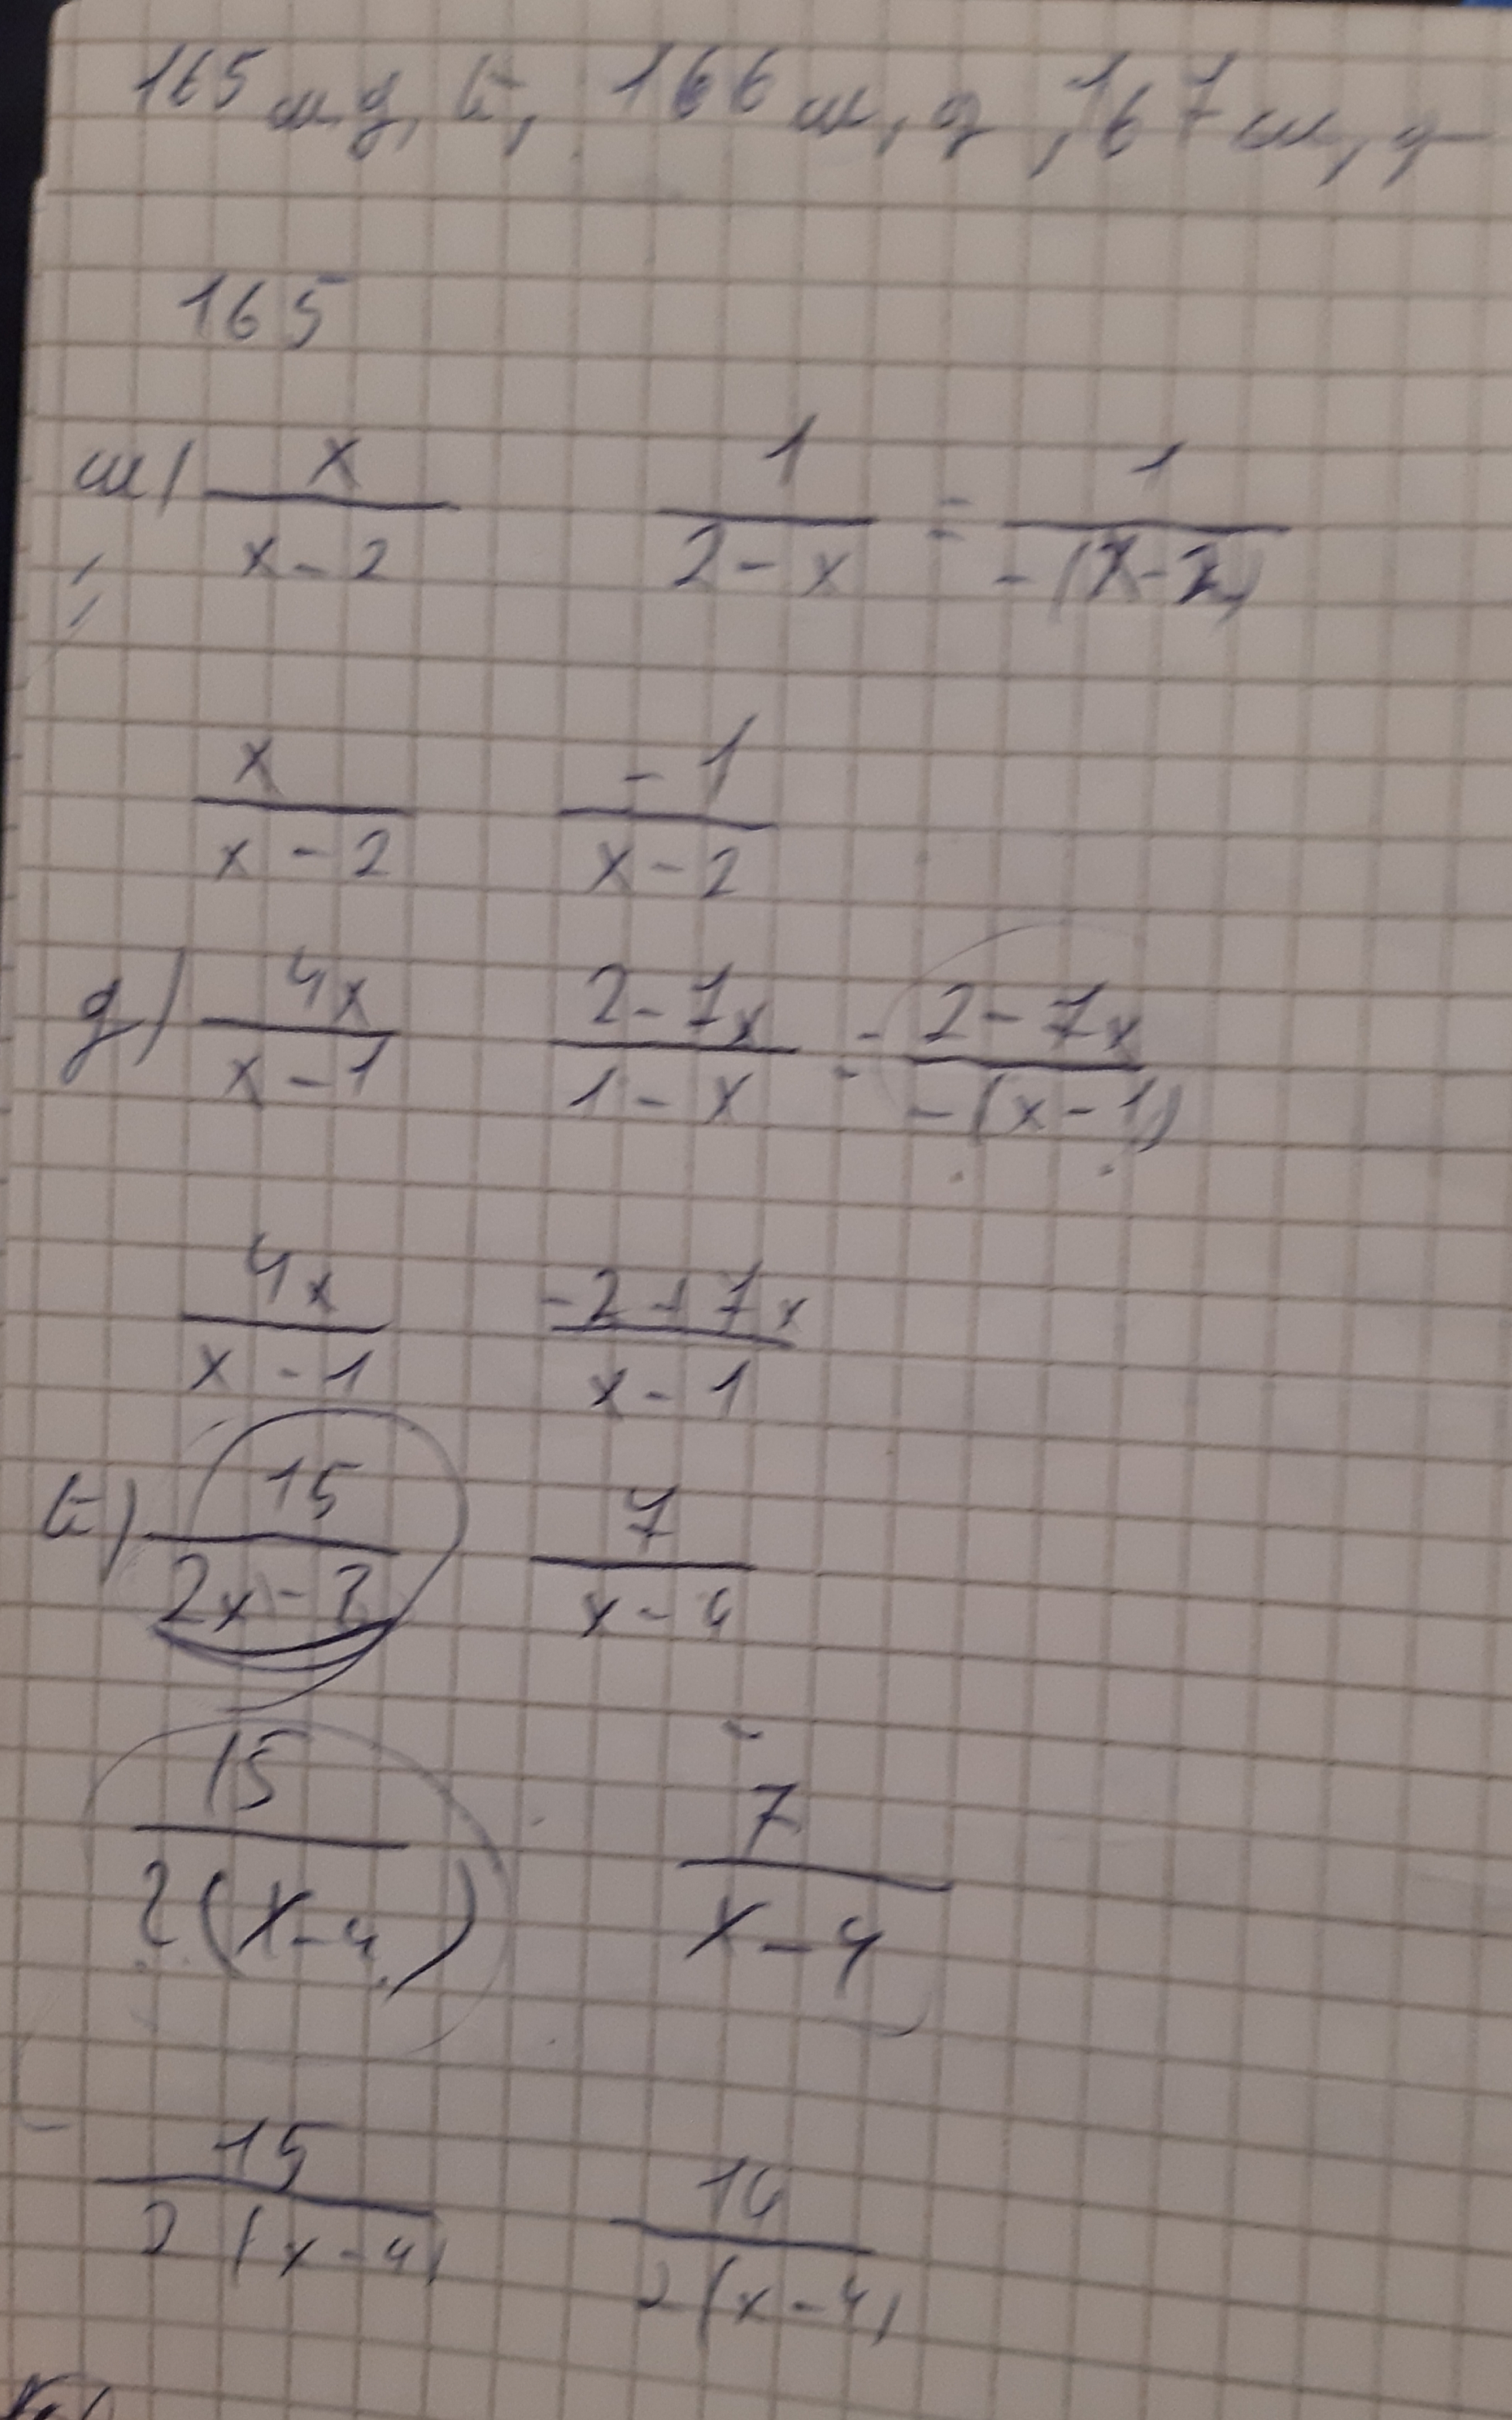 165 ա, գ, ե, 166 ա, գ, 167 ա, գ
165
ա) x/(x-2) 1/(2-x) = 1/(-(x-2))
x/(x-2) -1/(x-2)
գ) 4x/(x-1) (2-7x)/(1-x) = (2-7x)/(-(x-1))
4x/(x-1) (-2+7x)/(x-1)
ե) 15/(2x-8) 7/(x-4)
15/(2(x-4)) 7/(x-4)
15/(2(x-4)) 14/(2(x-4))